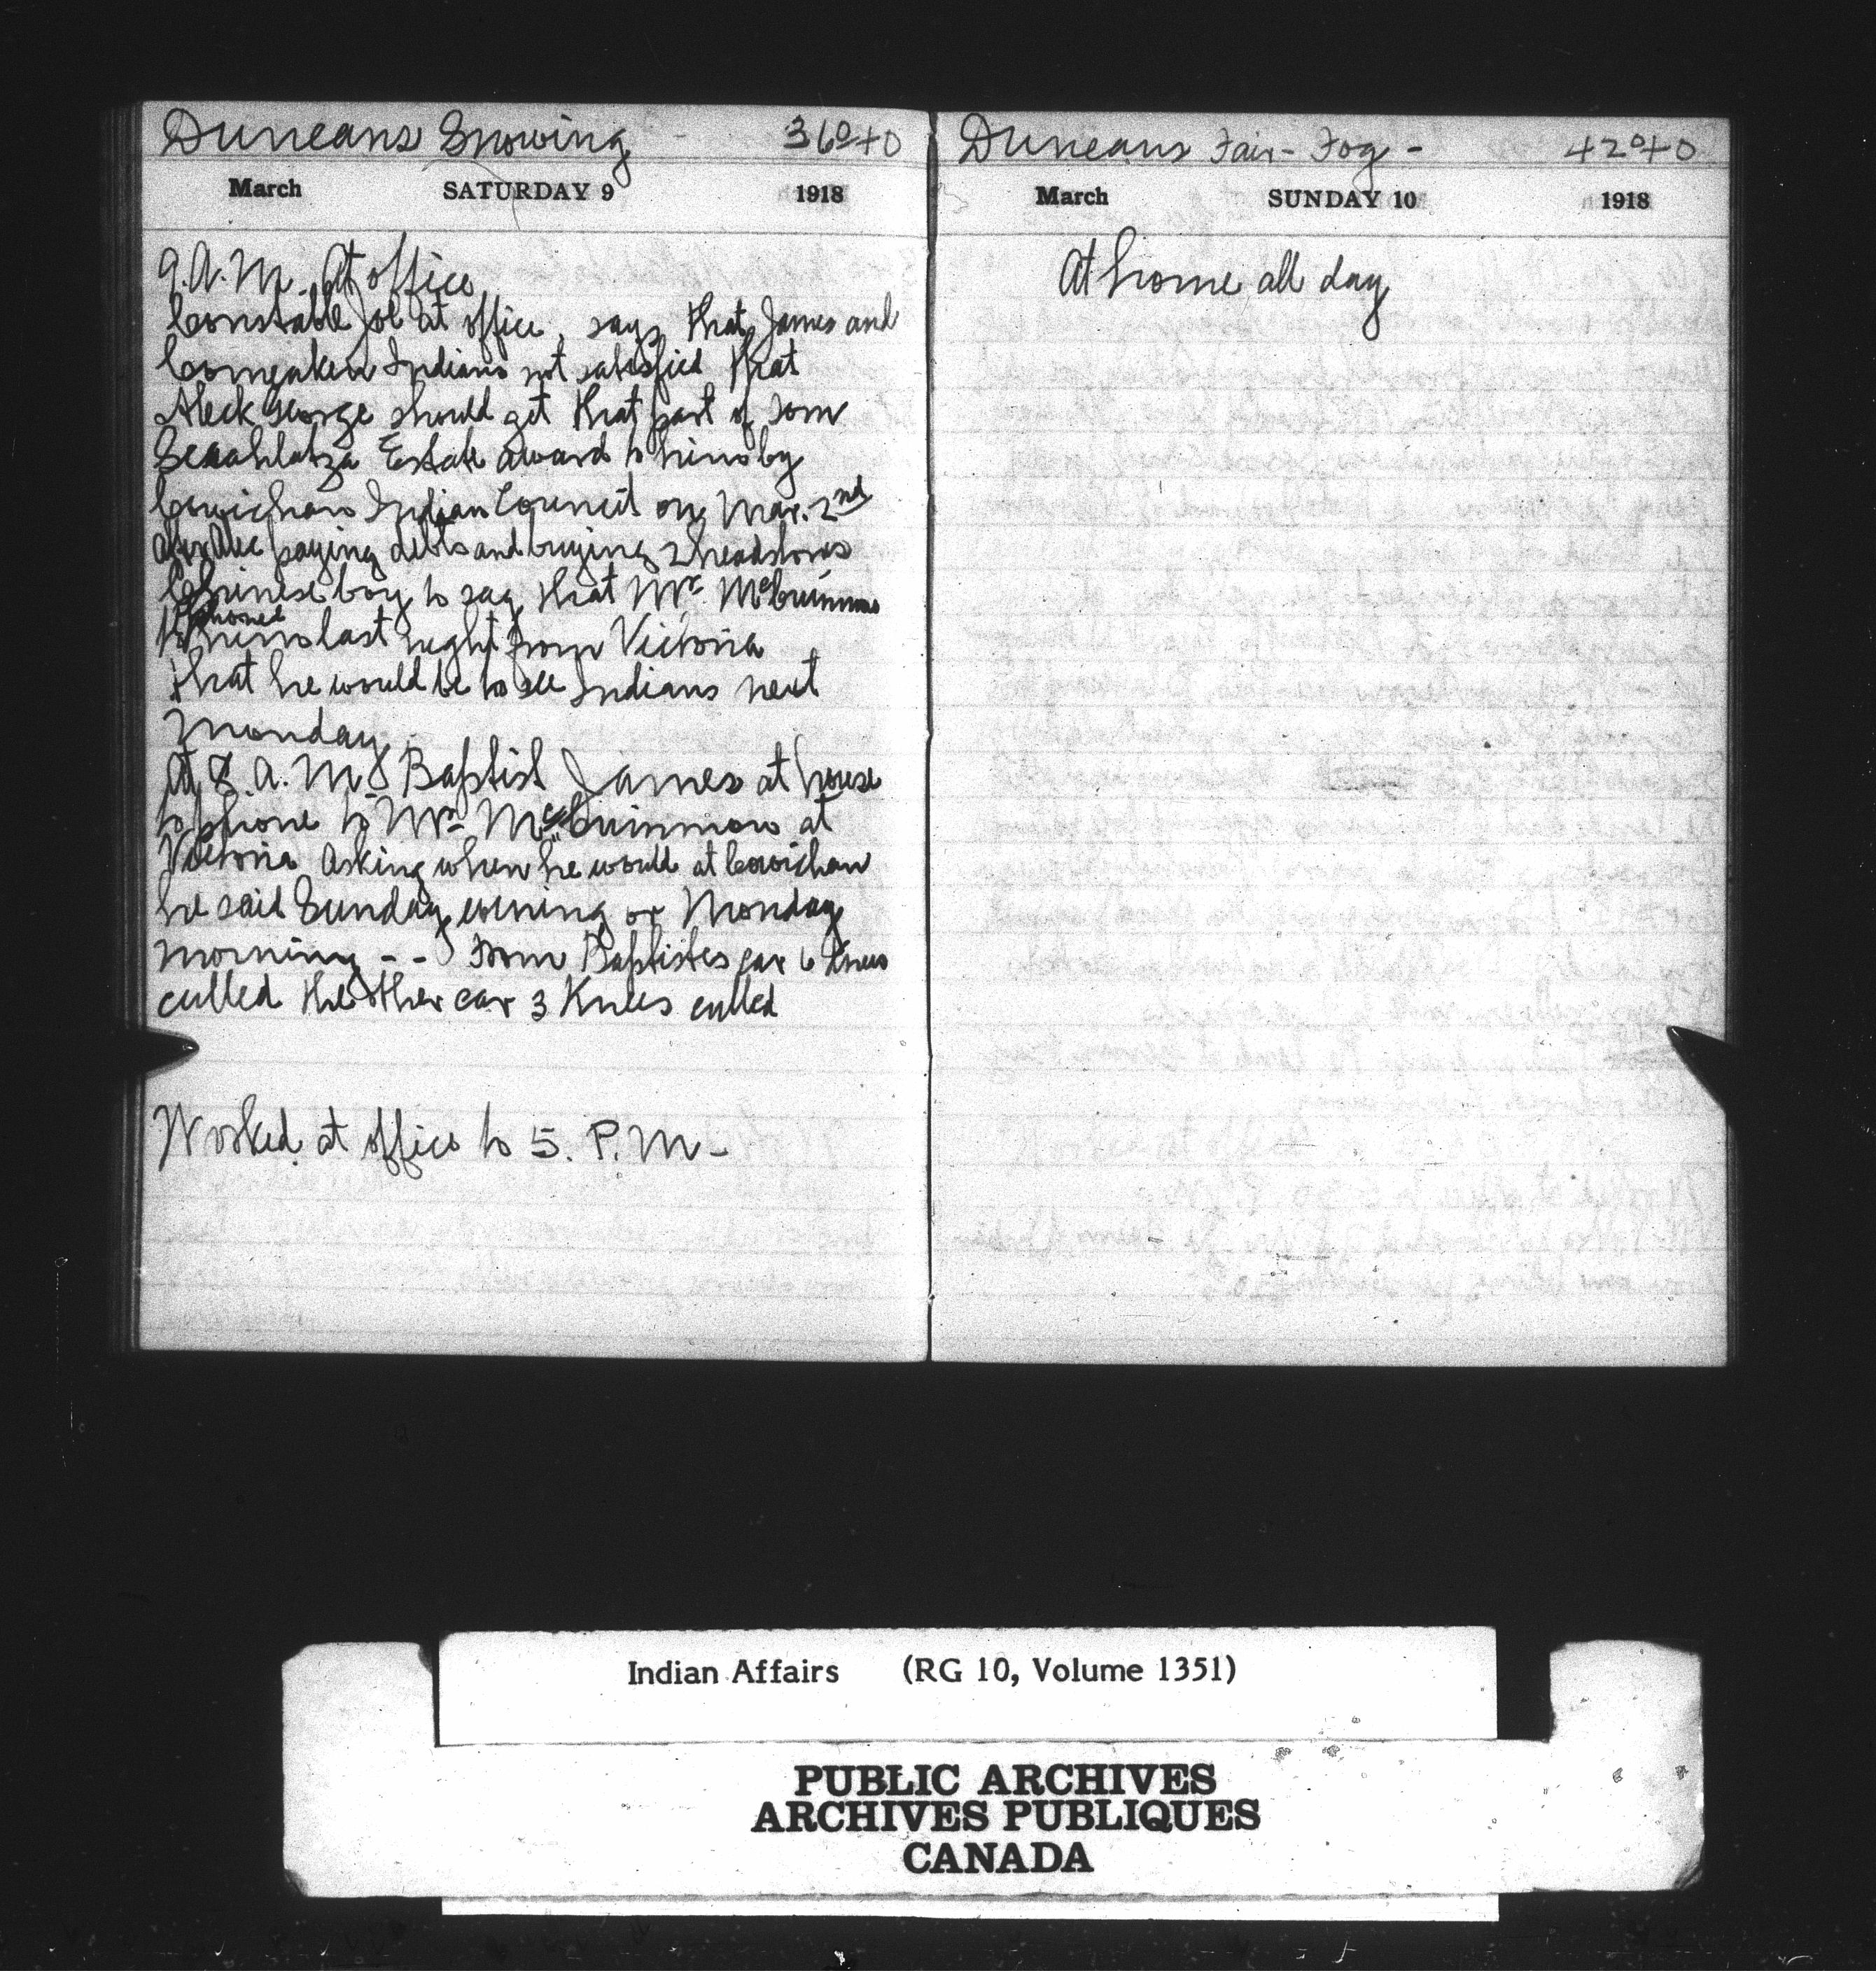 Duncans Snowing - 36°+0
March SATURDAY 9 1918
9.A.M. At office
Constable Joe at office, says that James and
Comeaken Indians not satisfied that
Aleck George should get that part of Tom
Estate award to him by
Cowichan Indian Council on Mar. 2nd
after Alec paying debts and buying 2 headstones
Chinese boy to say that Mr.
phoned
to him last night from Victoria
that he would be to see Indians next
Monday
At 8.A.M. Baptist James at house
to phone to Mr. at
Victoria Asking when he would at Cowichan
he said Sunday evening or Monday
morning - - From Baptistes car 6 Knees
culled the other car 3 Knees culled
Worked at office to 5. P.M -
Duncans Fair - Fog - 42°+0
March SUNDAY 10 1918
At home all day
Indian Affairs (RG 10, Volume 1351)
PUBLIC ARCHIVES
ARCHIVES PUBLIQUES
CANADA